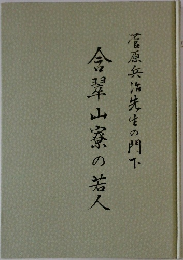 菅原兵治先生の門下
含翠山寮の若人